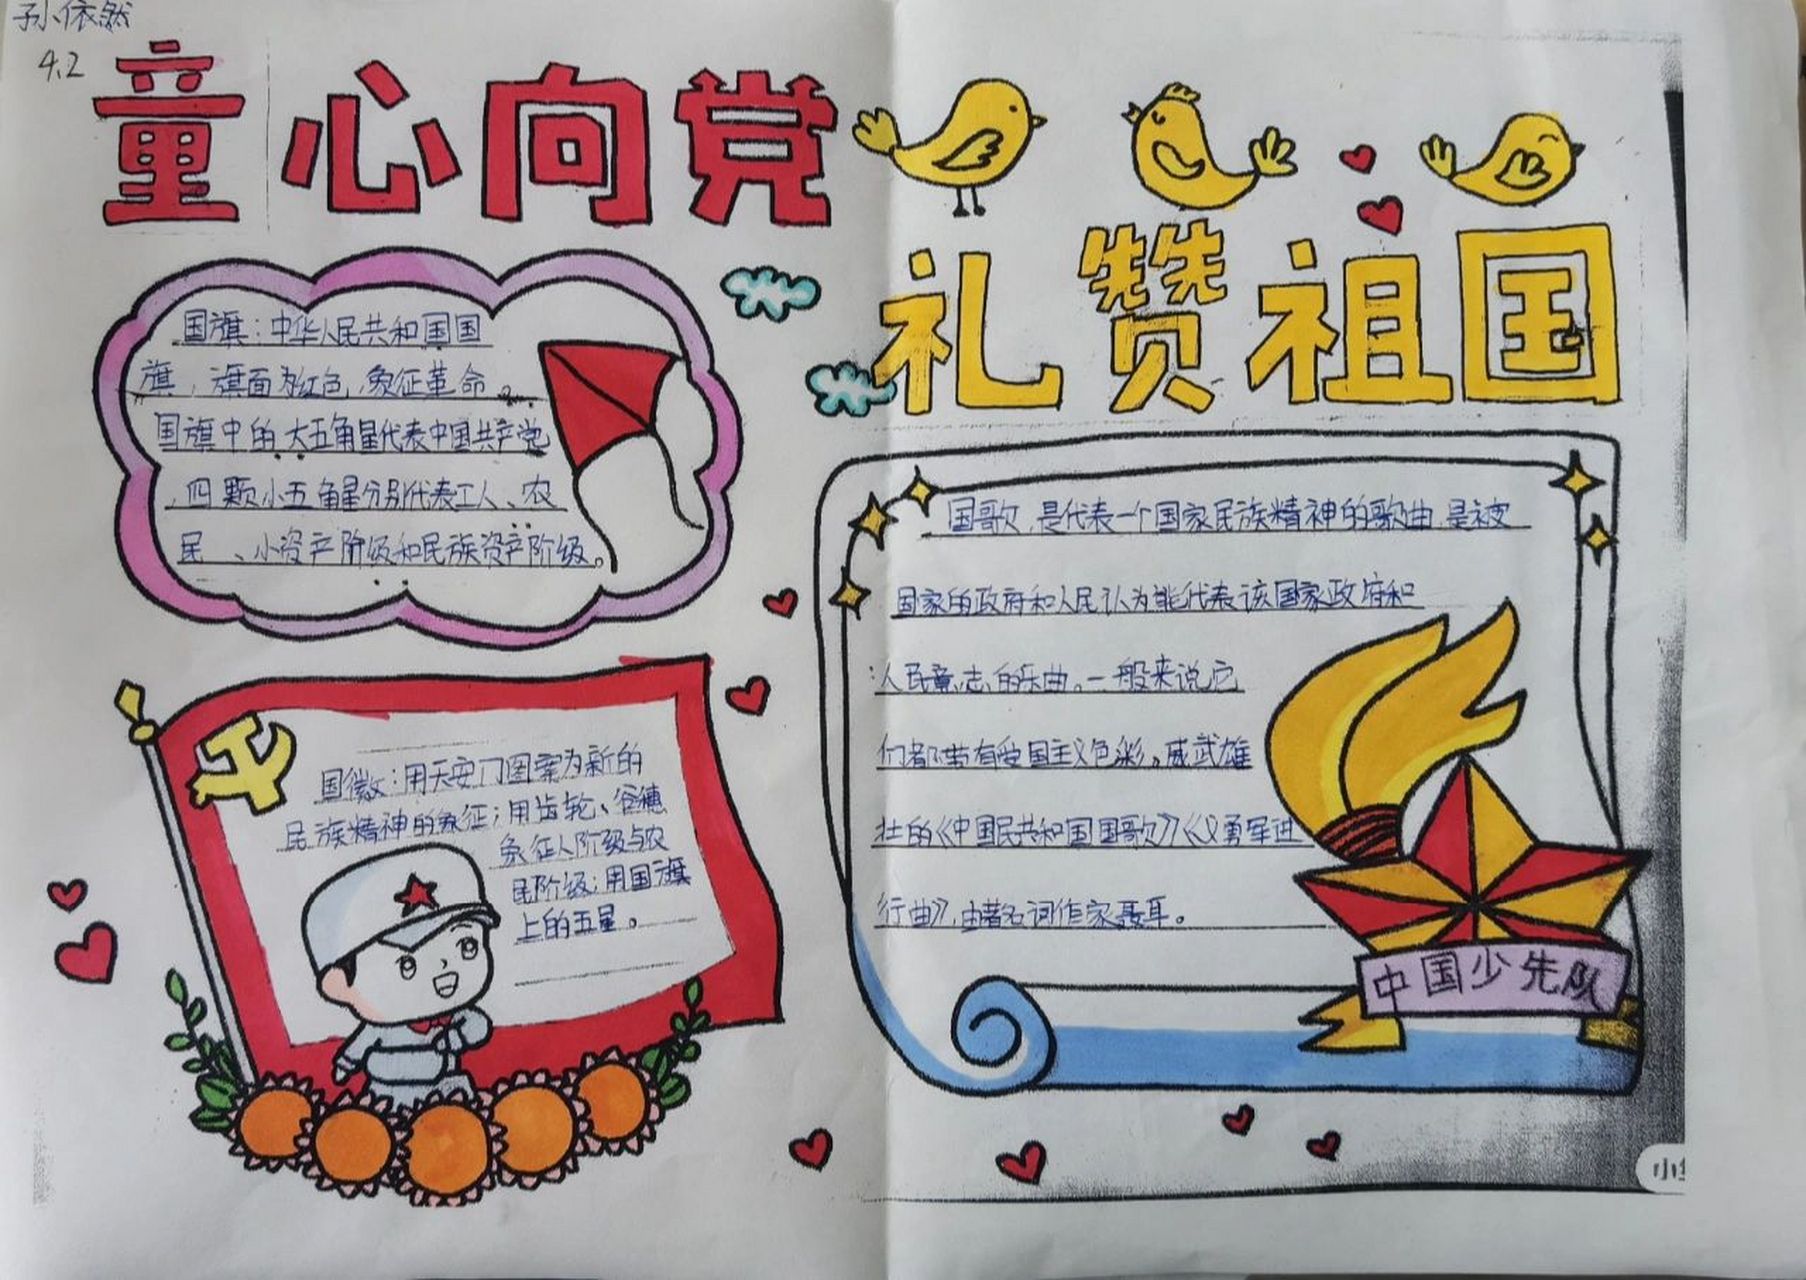 孙依然
4.2
童心向党
礼赞祖国
国旗：中华人民共和国国
旗，旗面为红色，象征革命。
国旗中的大五角星代表中国共产党
，四颗小五角星分别代表工人、农
民、小资产阶级和民族资产阶级。
国徽：用天安门图案为新的
民族精神的象征；用齿轮、谷穗
象征人阶级与农
民阶级；用国旗
上的五星。
国歌，是代表一个国家民族精神的歌曲，是被
国家的政府和人民认为能代表该国家政府和
人民意志的乐曲。一般来说它
们都带有爱国主义色彩。威武雄
壮的《中国民共和国国歌》《义勇军进
行曲》，由著名词作家聂耳。
中国少先队
小